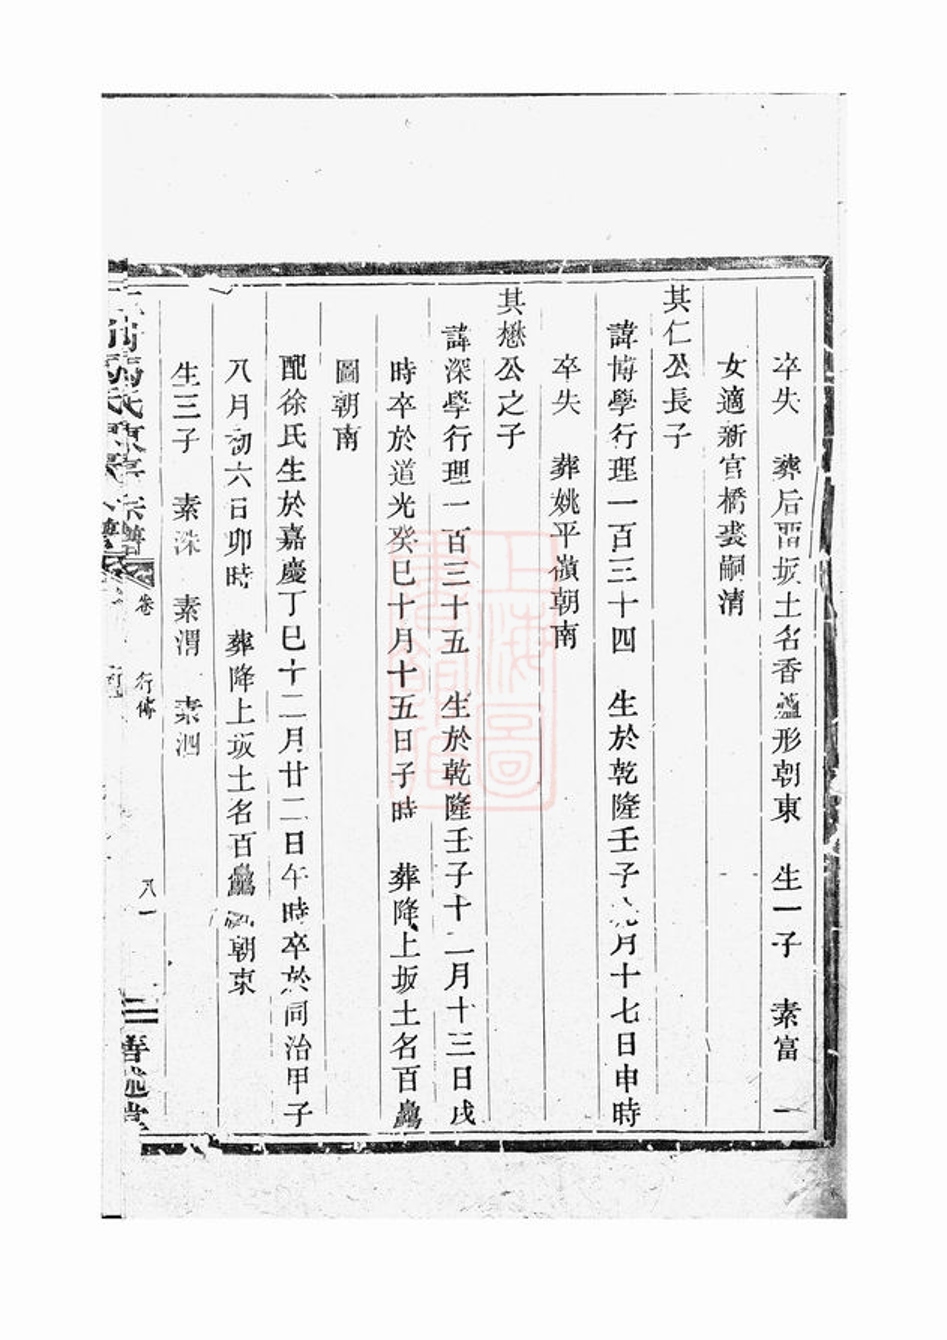 卒失　葬后畱坂土名香爐形朝東　生一子　素富　一
女適新官橋裘嗣清
其仁公長子
諱博學行理一百三十四　生於乾隆壬子九月十七日申時
卒失　葬姚平嶺朝南
其懋公之子
諱深學行理一百三十五　生於乾隆壬子十二月十三日戌
時卒於道光癸巳十月十五日子時　葬降上坂土名百鳥
圖朝南
配徐氏生於嘉慶丁巳十二月廿二日午時卒於同治甲子
八月初六日卯時　葬降上坂土名百鳥圖朝東
生三子　素洙　素渭　素泗
氏東
宗譜
卷
行傳
八一
善述堂
上海圖書館藏